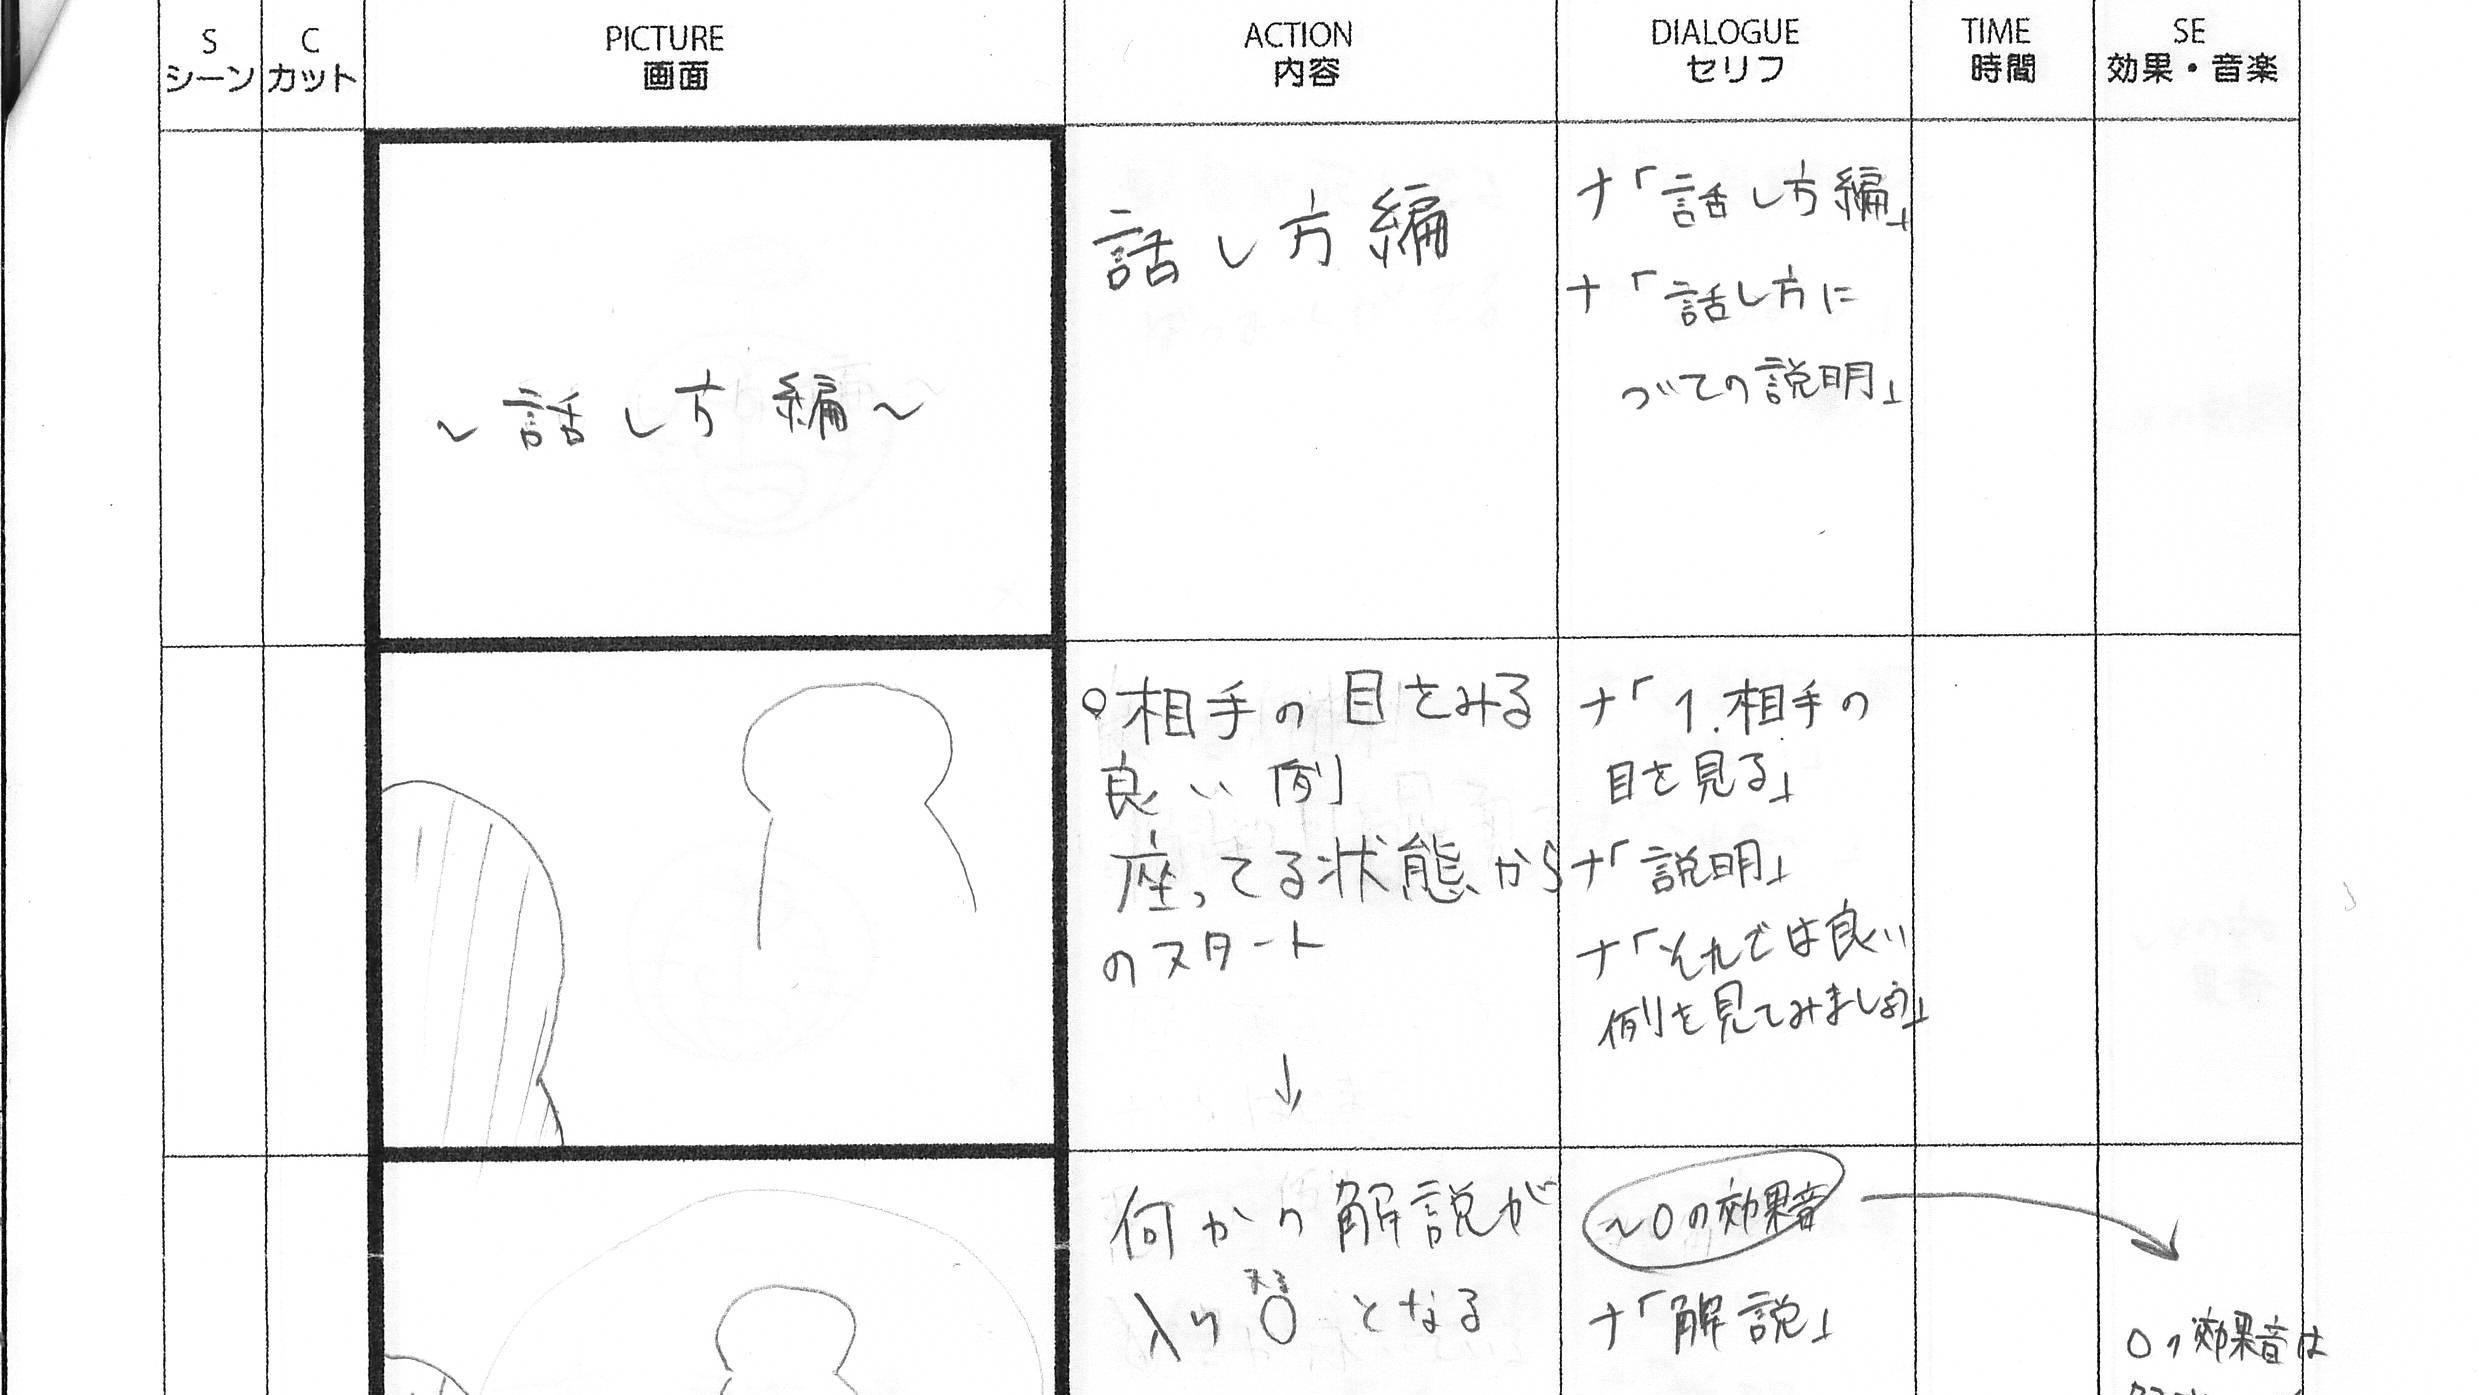 S
シーン
C
カット
PICTURE
画面
ACTION
内容
DIALOGUE
セリフ
TIME
時間
SE
効果・音楽
〜話し方編〜
話し方編
ナ「話し方編」
ナ「話し方に
づいての説明」
○相手の目をみる
良い例
座ってる状態から
のスタート
↓
ナ「1.相手の
目を見る」
ナ「説明」
ナ「それでは良い
例を見てみましょう」
何かの解説が
入り○となる
〜○の効果音
ナ「解説」
○の効果音は